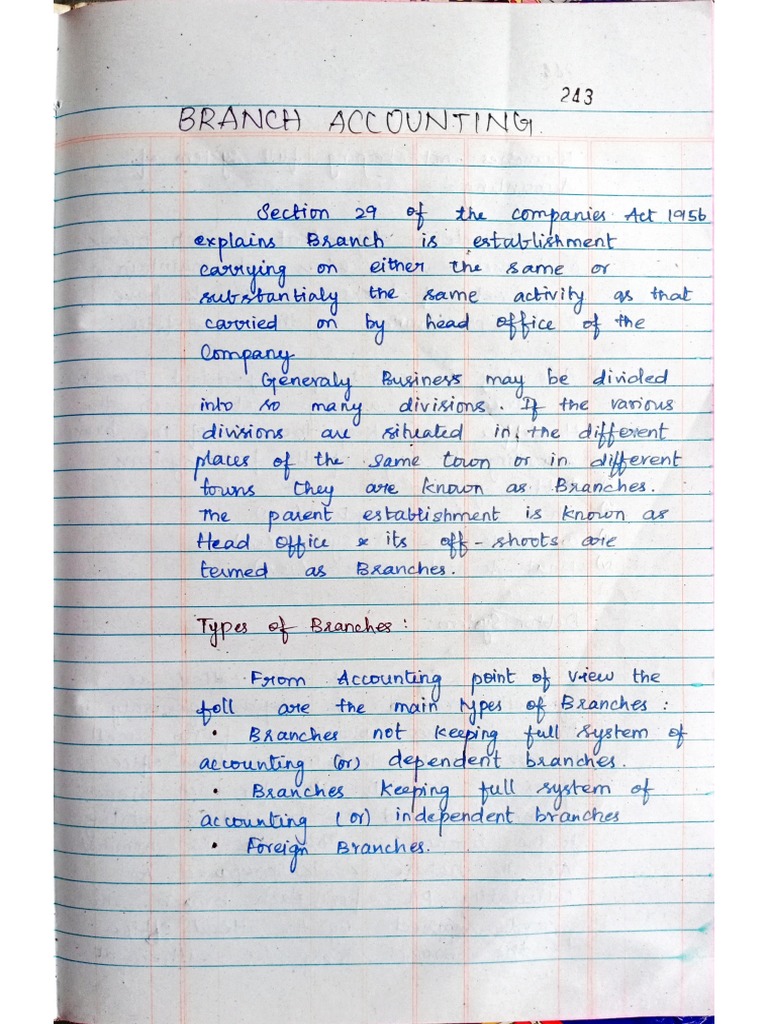 243
BRANCH ACCOUNTING.
Section 29 of the companies Act 1956
explains Branch is establishment
carrying on either the same or
substantialy the same activity as that
carried on by head office of the
Company
Generaly Business may be divided
into so many divisions. If the various
divisions are situated in the different
places of the same town or in different
towns they are known as Branches.
The parent establishment is known as
Head office & its off-shoots are
termed as Branches.
Types of Branches:
From Accounting point of view the
foll are the main types of Branches:
• Branches not keeping full system of
accounting (or) dependent branches.
• Branches keeping full system of
accounting (or) independent branches
• Foreign Branches.